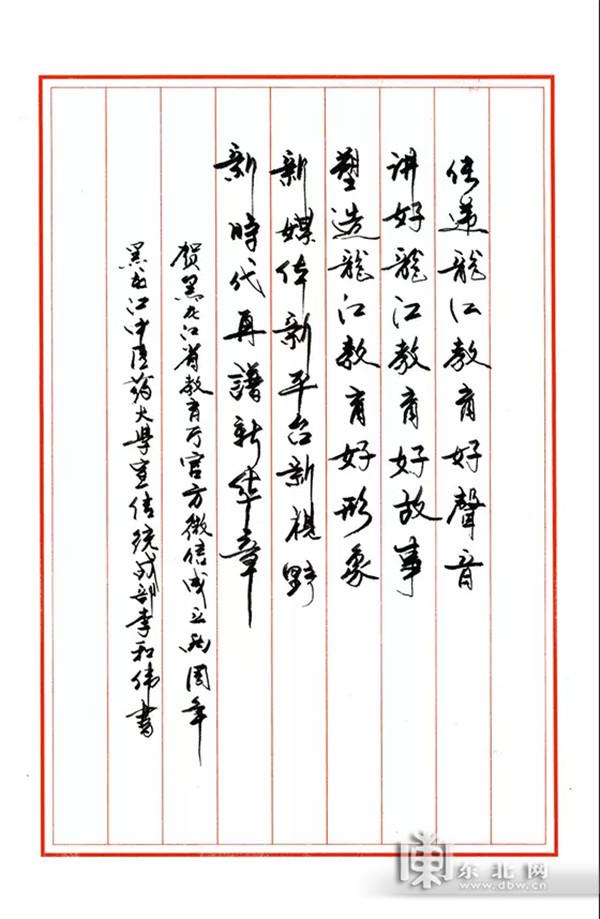 传递龍江教育好聲音
讲好龍江教育好故事
塑造龍江教育好形象
新媒体新平台新視野
新時代再譜新华章
贺黑龙江省教育厅官方微信成立两周年
黑龙江中医药大學宣传统战部李和伟書
東 东北网
www.dbw.cn